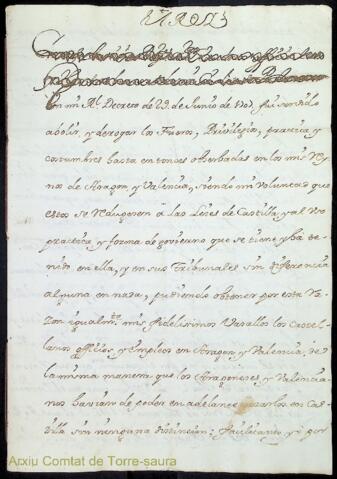 En mi Rl. Decreto de 29 de Junio de 1707, fui servido
abolir, y derogar los Fueros, Privilegios, practica y
costumbres hasta entonces observadas en los mis Rey
nos de Aragon y Valencia, siendo mi voluntad que
estos se redugesen à las Leies de Castilla, y al uso
practica y forma de govierno que se tiene y ha te
nido en ella, y en sus Tribunales sin diferencia
alguna en nada, pudiendo obtener por esta Ra
zon igualmte. mis fidelisimos Vasallos los Castel
lanos officios, y Empleos en Aragon y Valencia, de
la misma manera que los Aragoneses y Valencia
nos havian de poder en adelante gozarlos en Cas
tilla sin ninguna distincion; facilitando yo por
Arxiu Comtat de Torre-saura